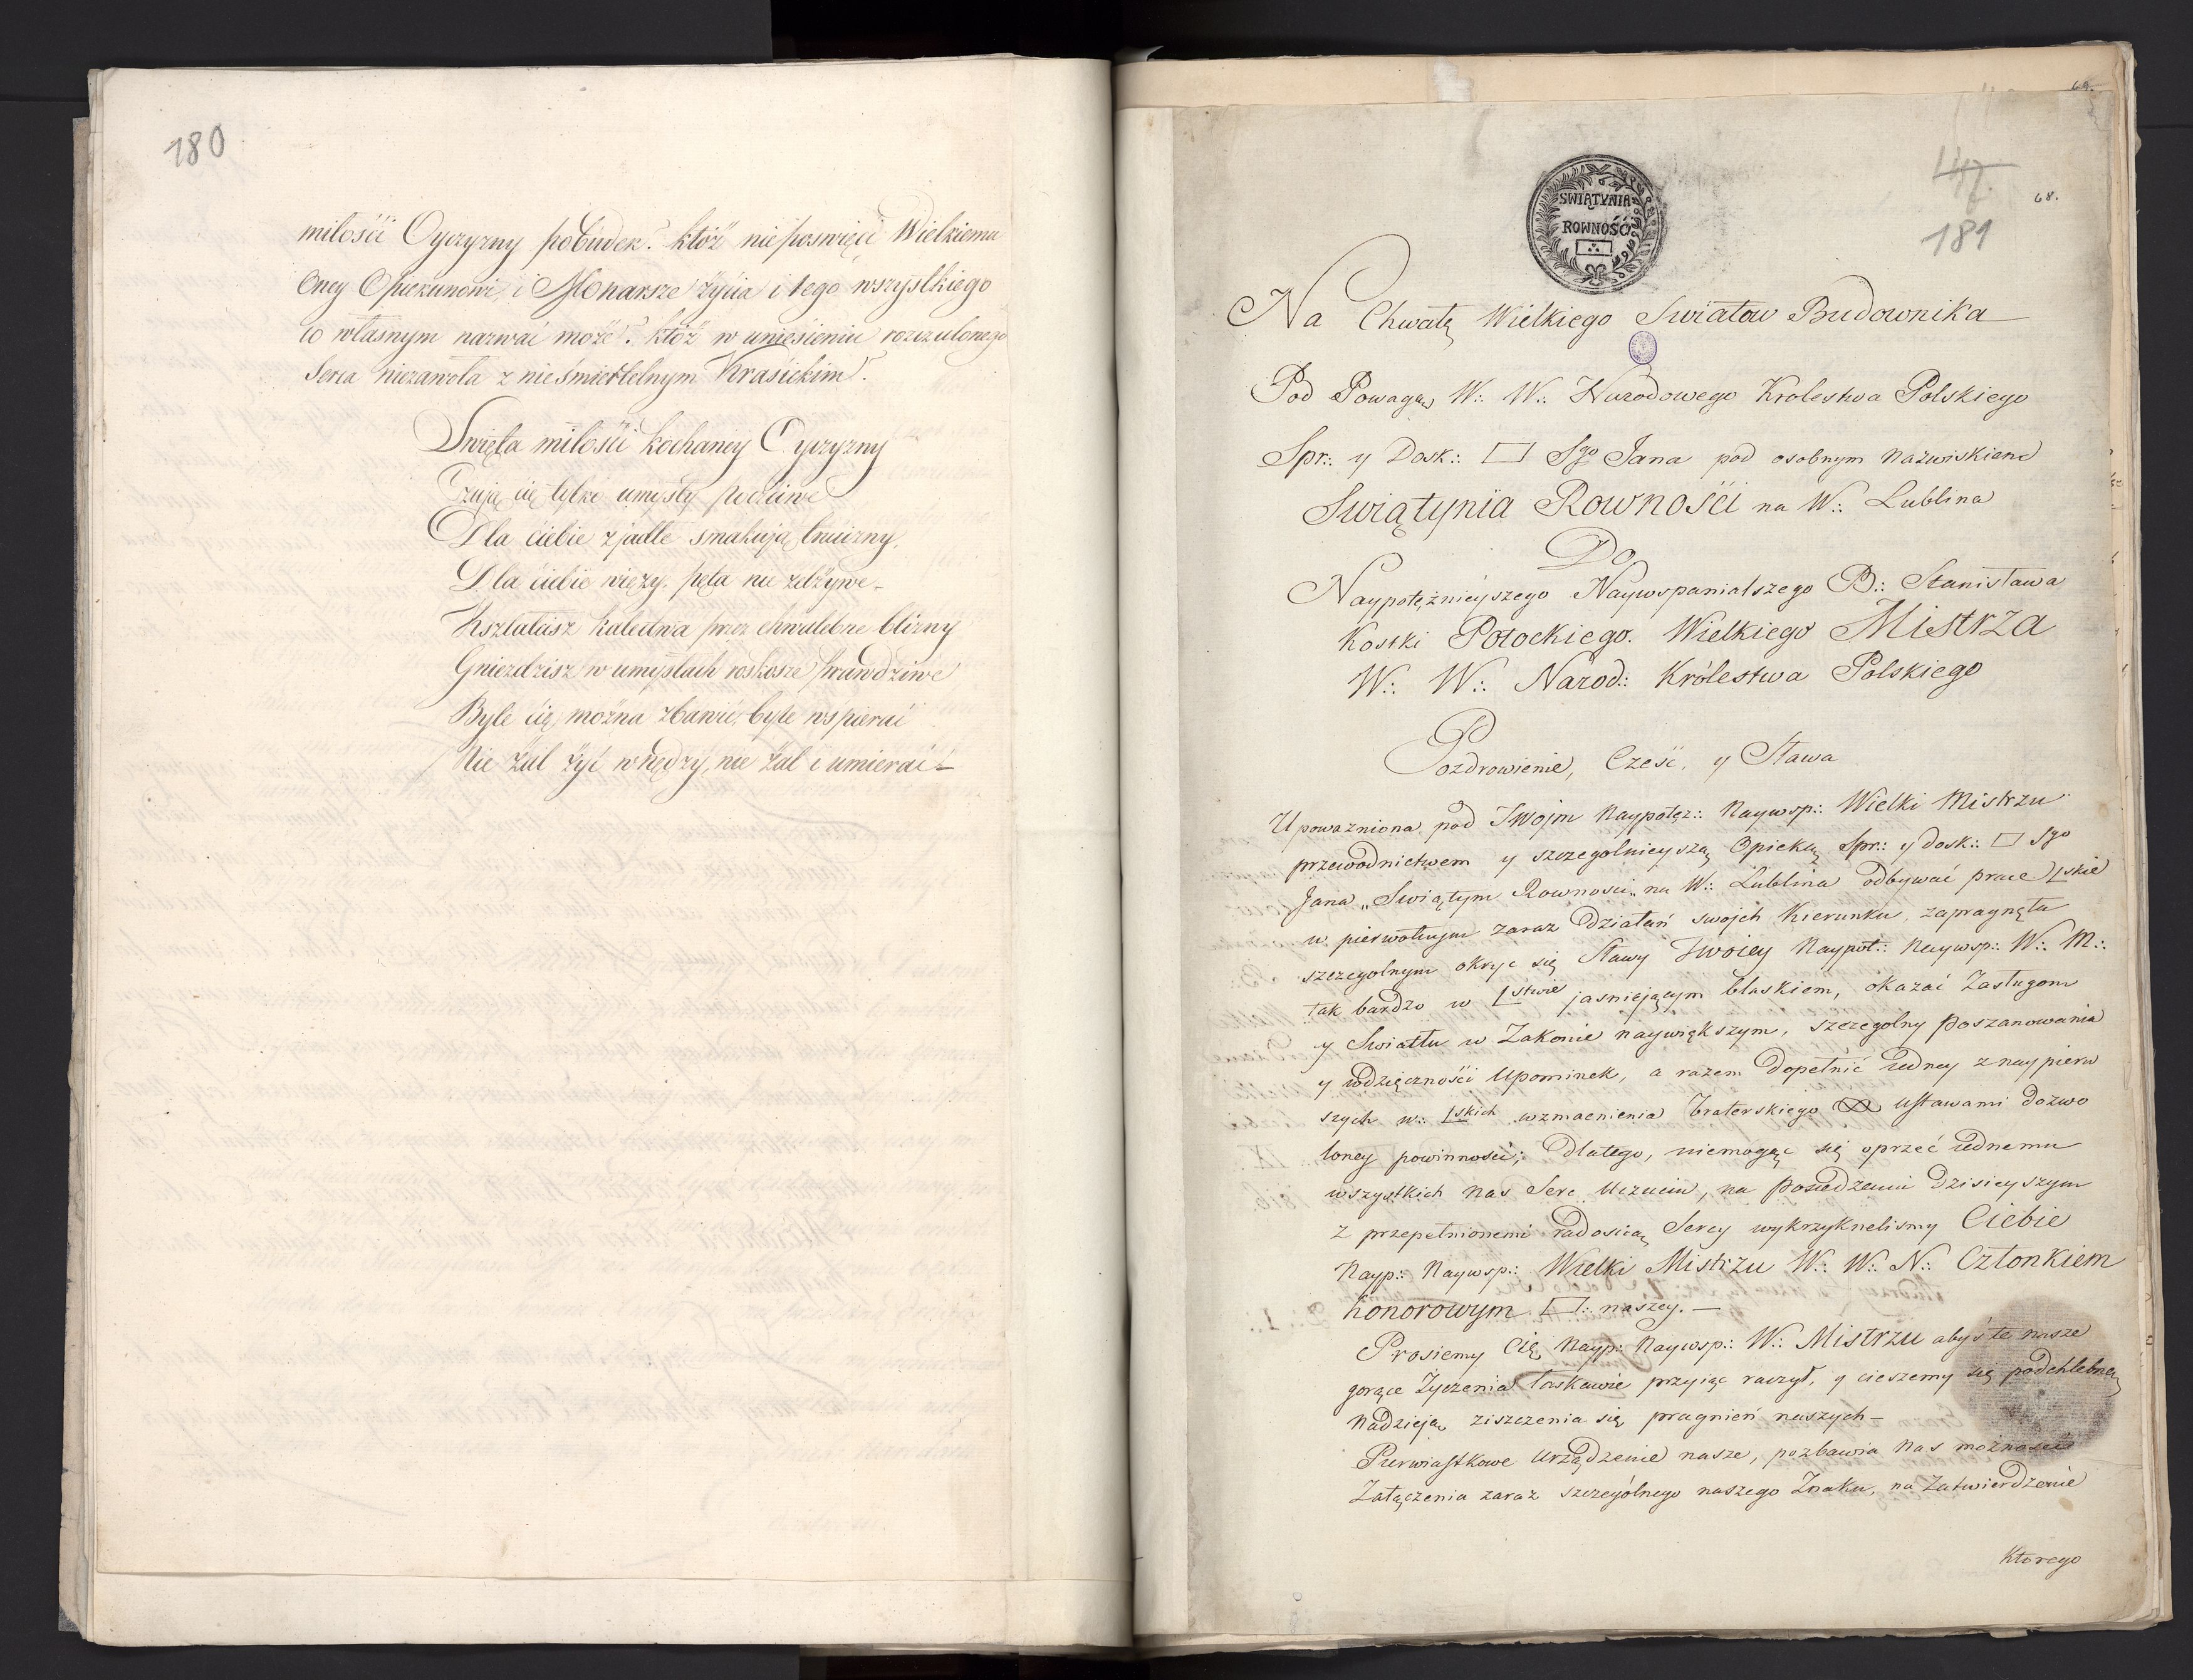 180
miłośći Oyczyzny pobudek? któż niepoświęci Wielkiemu
Oney Opiekunowi, i Monarsze życia i tego wszystkiego
co własnym nazwać może? któż w uniesieniu rozczulonego
Serca niezawoła z nieśmiertelnym Krasickim.
Święta miłośći kochaney Oyczyzny
Czują cię tylko umysły poczciwe
Dla ciebie zjadłe smakują trucizny
Dla ciebie więzy, pęta nie zelżywe –
Kształcisz kalectwa przez chwalebne blizny
Gniezdzisz w umysłach roskosze prawdziwe
Byle cię można zbawić, byle wspierać
Nie żal żyć w nędzy, nie żal i umierać –
68.
147.
181
68.
SWIĄTYNIA
ROWNOŚĆI
Na Chwałę Wielkiego Swiatow Budownika
Pod Powagą W∴ W∴ Narodowego Krolestwa Polskiego
Spr∴ y Dosk∴ ▭ Sgo Jana pod osobnym nazwiskiem
Swiątynia Rownośći na W∴ Lublina
Do
Naypotężnieyszego Naywspanialszego B∴ Stanisława
Kostki Potockiego. Wielkiego Mistrza
W∴ W∴ Narod∴ Królestwa Polskiego
Pozdrowienie, Cześć, y Sława
Upoważniona pod Twojm Naypotęż∴ Naywsp∴ Wielki Mistrzu
przewodnictwem y szczegolnieyszą Opieką Spr∴ y Dosk∴ ▭ Sgo
Jana „Swiątyni Rowności„ na W∴ Lublina odbywać prace Lskie
w pierwotnym zaraz Działań swojch Kierunku, zapragnęła
szczegolnym okryc się Sławy Twoiey Naypot∴ Naywsp∴ W∴ M∴
tak bardzo w Lstwie jasniejącym blaskiem, okazać Zasługom
y Swiatłu w Zakonie naywiększym, szczegolny poszanowania
y wdzięcznośći Upominek, a razem Dopełnić iedney z naypierw
szych w∴ Lskich wzmacnienia braterskiego ustawami dozwo
loney powinnosci; Dlatego, niemogąc się oprzeć iednemu
wszystkich nas Serc Uczuciu, na posiedzeniu Dzisieyszym
z przepełnionemi radoscią Sercy wykrzyknelismy Ciebie
Nayp∴ Naywsp∴ Wielki Mistrzu W∴ W∴ N∴ Członkiem
honorowym ▭∴ naszey. –
Prosiemy Cię Nayp∴ Naywsp∴ W∴ Mistrzu abyś te nasze
gorące Życzenia łaskawie przyiąc raczył, y cieszemy się podchlebną
Nadzieją ziszczenia się pragnień naszych –
Pierwiastkowe Urządzenie nasze, pozbawia Nas możności
Załączenia zaraz szczególnego naszego Znaku, na Zatwierdzenie
Ktorego